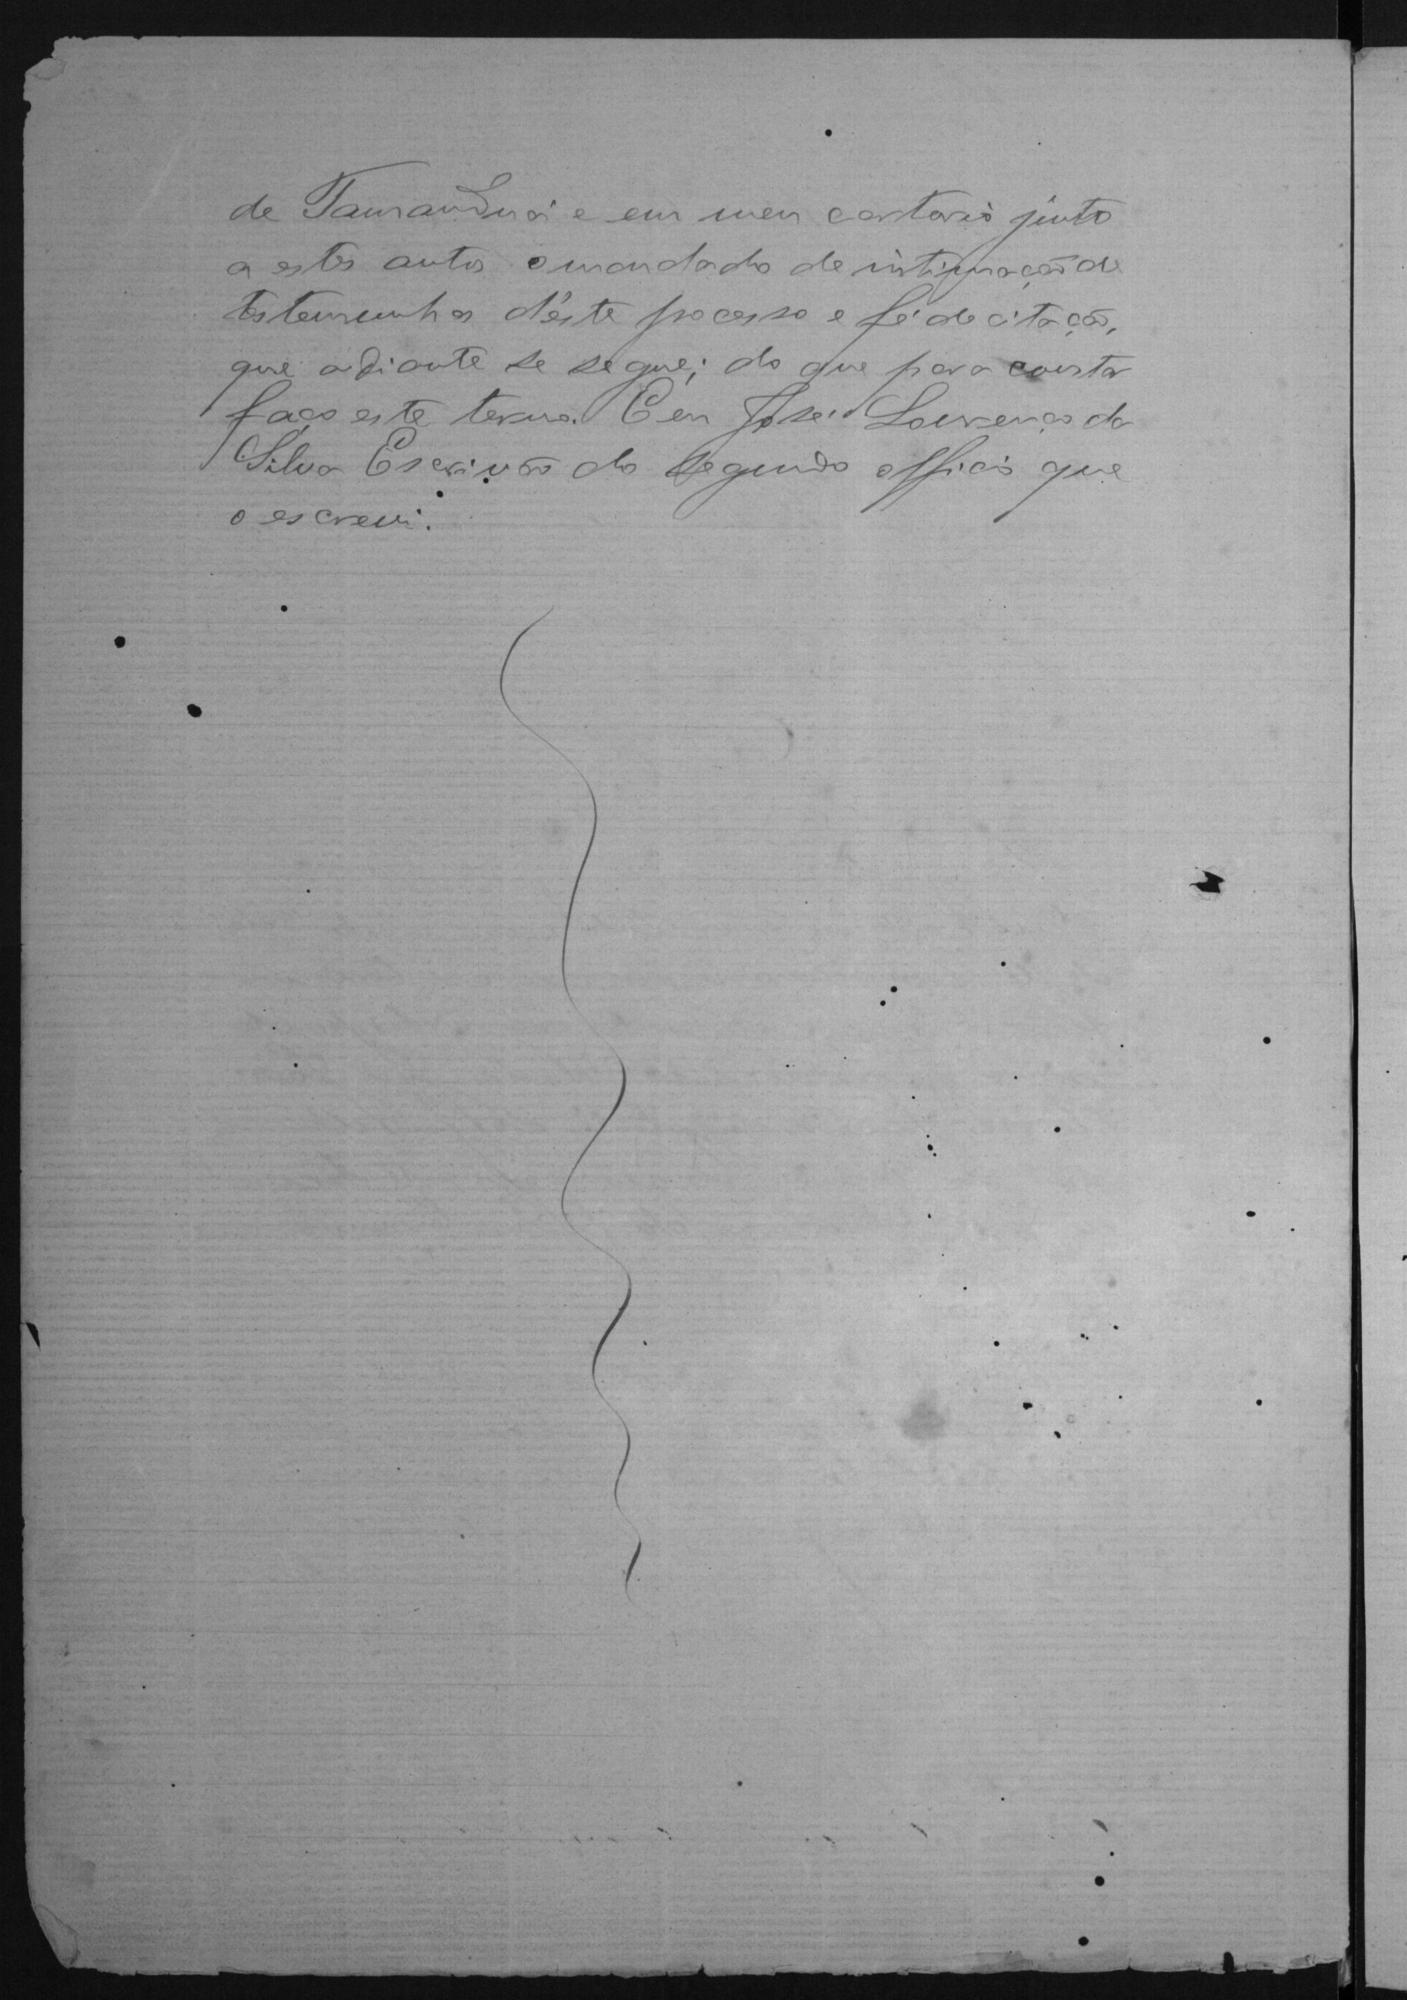 de Tamanduá e em meu cartorio junto
a estes autos o mandado de intimação de
testemunhas d'éste processo e fé de citação,
que adiante se segue; do que para constar
faço este termo. E eu José Lourenço da
Silva Escrivão do segundo officio que
o escrevi.